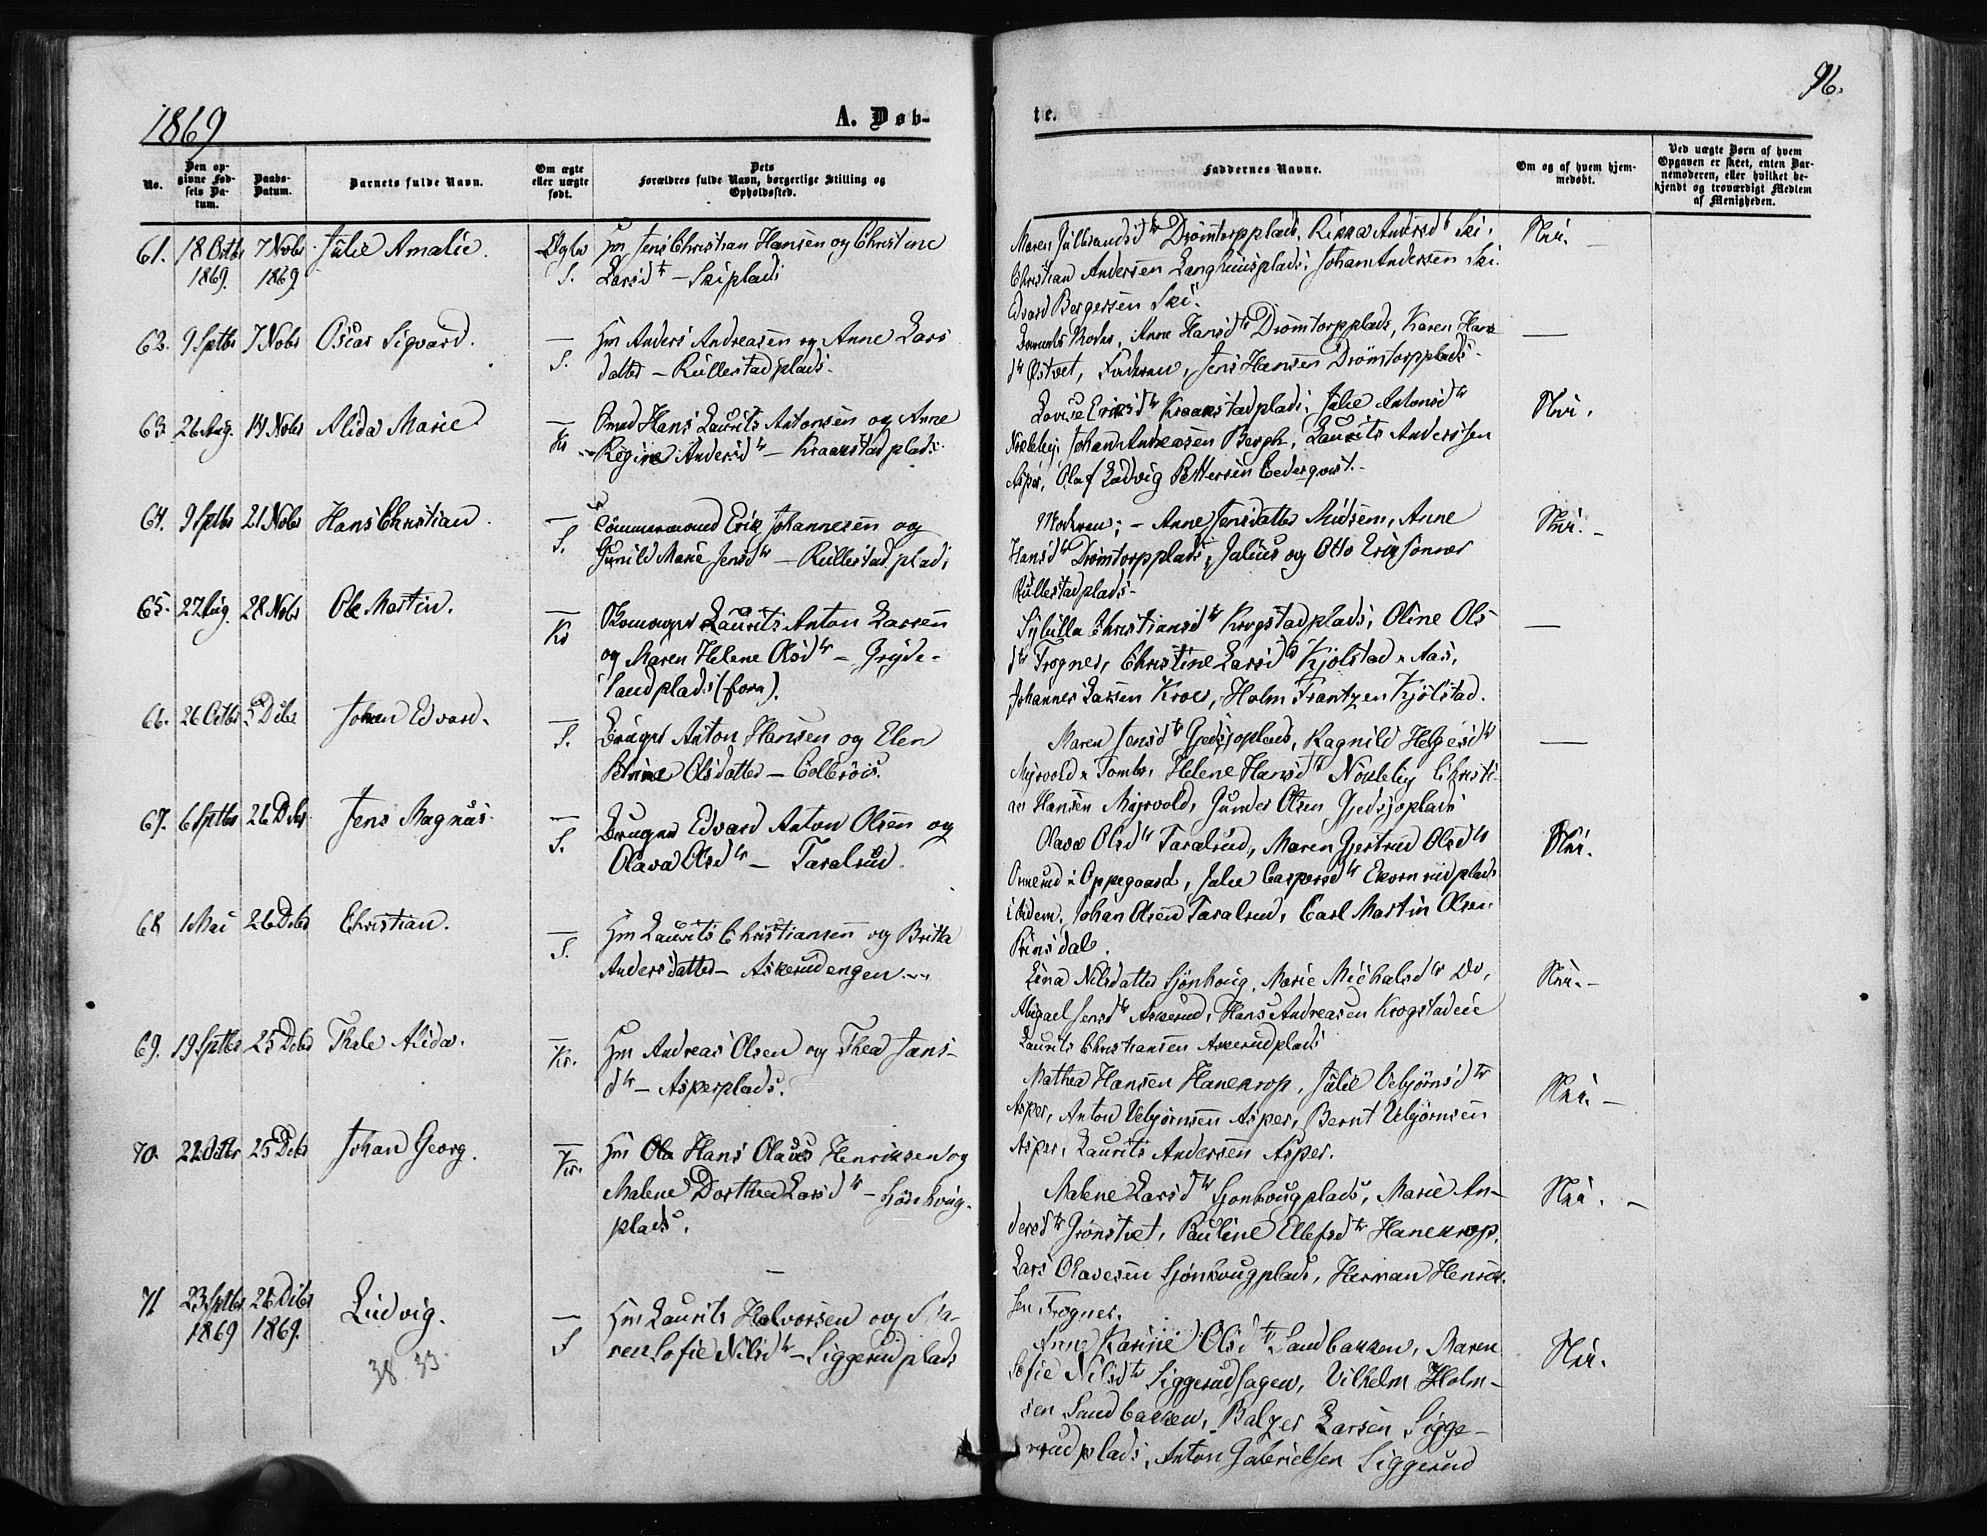 1869
A. Døb-
te.
96.
No.
Den op-
givne Fød-
sels Da-
tum.
Daabs-
Datum.
Barnets fulde Navn.
Om ægte
eller uægte
født.
Dets
Forældres fulde Navn, borgerlige Stilling og
Opholdssted.
Faddernes Navne.
Om og af hvem hjem-
medøbt.
Ved uægte Børn af hvem
Opgaven er skeet, enten Bar-
nemoderen, eller hvilket be-
kjendt og troværdigt Medlem
af Menigheden.
61. 18 Octbr 7 Novbr Julie Amalie. Ægte Hm Jens Christian Hansen og Christine
1869. 1869 S. Larsd tr – Skiplads
Maren Gulbrandsd tr Drømtorpplads, Rikka Andersd tr Ski,
Christian Andersen Langhuusplads, Johan Andersen Ski
Edvard Bergersen Ski.
62. 9 Septbr 7 Novbr Oscar Sigvard. — Hm Anders Andreasen og Anne Lars
S. datter – Rullestadplads.
Barnets Moder, Anne Hansd tr Drømtorpplads, Karen Hans
d tr Østvet, Faderen, Jens Hansen Drømtorpplads.
63. 26 Aug. 14 Novbr Alida Marie — Smed Hans Laurits Antonsen og Anne
Kr Regine Andersd tr – Kraakstadplads.
Lovise Eriksd tr Kraakstadplads, Julie Antonsd tr
Nokleby, Johan Andreasen Bergh, Laurits Anderssen
Asper, Olaf Ludvig Pettersen Cederqvist.
64. 9 Septbr 21 Novbr Hans Christian. — Tømmermand Erik Johannesen og
S. Gunild Marie Jensd tr – Rullestadplads
Moderen; – Anne Jensdatter Midsem, Anne
Hansd tr Drømtorpplads, Julius og Otto Erikssønner
Rullestadplads.
65. 27 Aug. 28 Novbr Ole Martin. — Skomager Laurits Anton Larsen
Kr og Maren Helene Olsd tr – Gryde-
landplads (forn).
Sybilla Christiansd tr Krogstadplads, Oline Ols
d tr Frogner, Christine Larsd tr Kjølstad i Aas,
Johannes Larsen Kroer, Holm Frantzen Kjølstad.
66. 26 Octbr 5 Debr Johan Edvard. — Bruger Anton Hansen og Elen
S. Petrine Olsdatter – Colbrøis.
Maren Jensd tr Gjedsjøplads, Ragnild Helgesd tr
Myrvold, Helene Hansd tr Nokleby Christi-
an Hansen Myrvold, Gunder Olsen Gjedsjøplads
67. 6 Septbr 26 Debr Jens Magnus — Bruger Edvard Anton Olsen og
S. Olava Olsd tr – Taralrud.
Olava Olsd tr Taralrud, Maren Gjertrud Olsd tr
Ormerud i Oppegaard, Julie Caspersd tr Ekornrudplads
ibidem, Johan Olsen Taralrud, Carl Martin Olsen
Prinsdal.
68 1 Mai 26 Debr Christian. — Hm Laurits Christiansen og Britta
S. Andersdatter – Askerudengen
Lina Nilsdatter Sjønhoug, Marie Michalsd tr Do,
Abigael Jensd tr Askerud, Hans Andreasen Krogstadeie
Laurits Christiansen Askerudplads
69. 19 Septbr 25 Debr Thale Alida. — Hm Andreas Olsen og Thea Jans-
Kr. d tr – Asperplads.
Mathea Hansen Hanekrop, Julie Vebjørnsd tr
Asper, Anton Vebjørnsen Asper, Bernt Vebjørnsen
Asper, Laurits Andersen Asper.
70. 25 Debr Johan Georg. — Hm Hans Olaves Henriksen og
Kr. Malene Dorthea Larsd tr –
plads.
Malene Larsd tr Sjonhougplads, Marie An-
dersd tr Grønstvet, Pauline Ellefsd tr Hanekrop,
Lars Olavesen Sjønhougplads, Herman Henrik-
sen Frogner.
71 23 Septbr 26 Debr Ludvig. — Hm Laurits Halvorsen og Ma-
1869 1869. S ren Sofie Nilsd tr – Siggerudplads
Anne Karine Olsd tr Sandbakken, Maren
Sofie Nilsd tr Siggerudhagen, Vilhelm Holm-
sen Sandbakken, Balzer Larsen Sigge-
rudplads, Anton Gabrielsen Siggerud
38. 33.